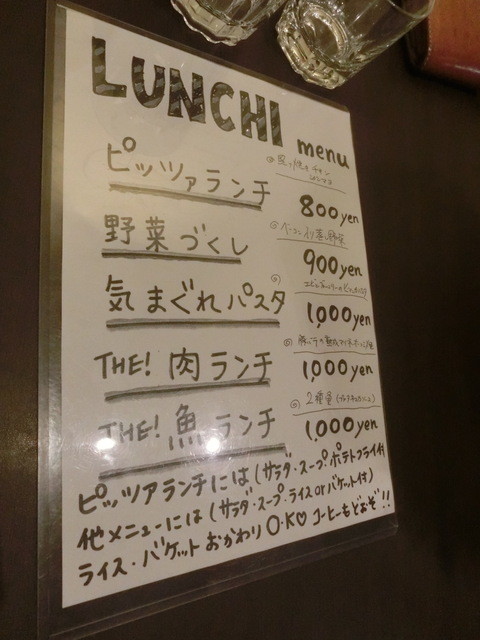 LUNCHI menu
ピッツァランチ
800yen
野菜づくし
900yen
気まぐれパスタ
1,000yen
THE! 肉ランチ
1,000yen
THE! 魚ランチ
1,000yen
ピッツアランチには(サラダ・スープ・ポテトフライ付
他メニューには(サラダ・スープ・ライス or バケット付)
ライス・バケット おかわり O・K♡ コーヒーもどおぞ!!